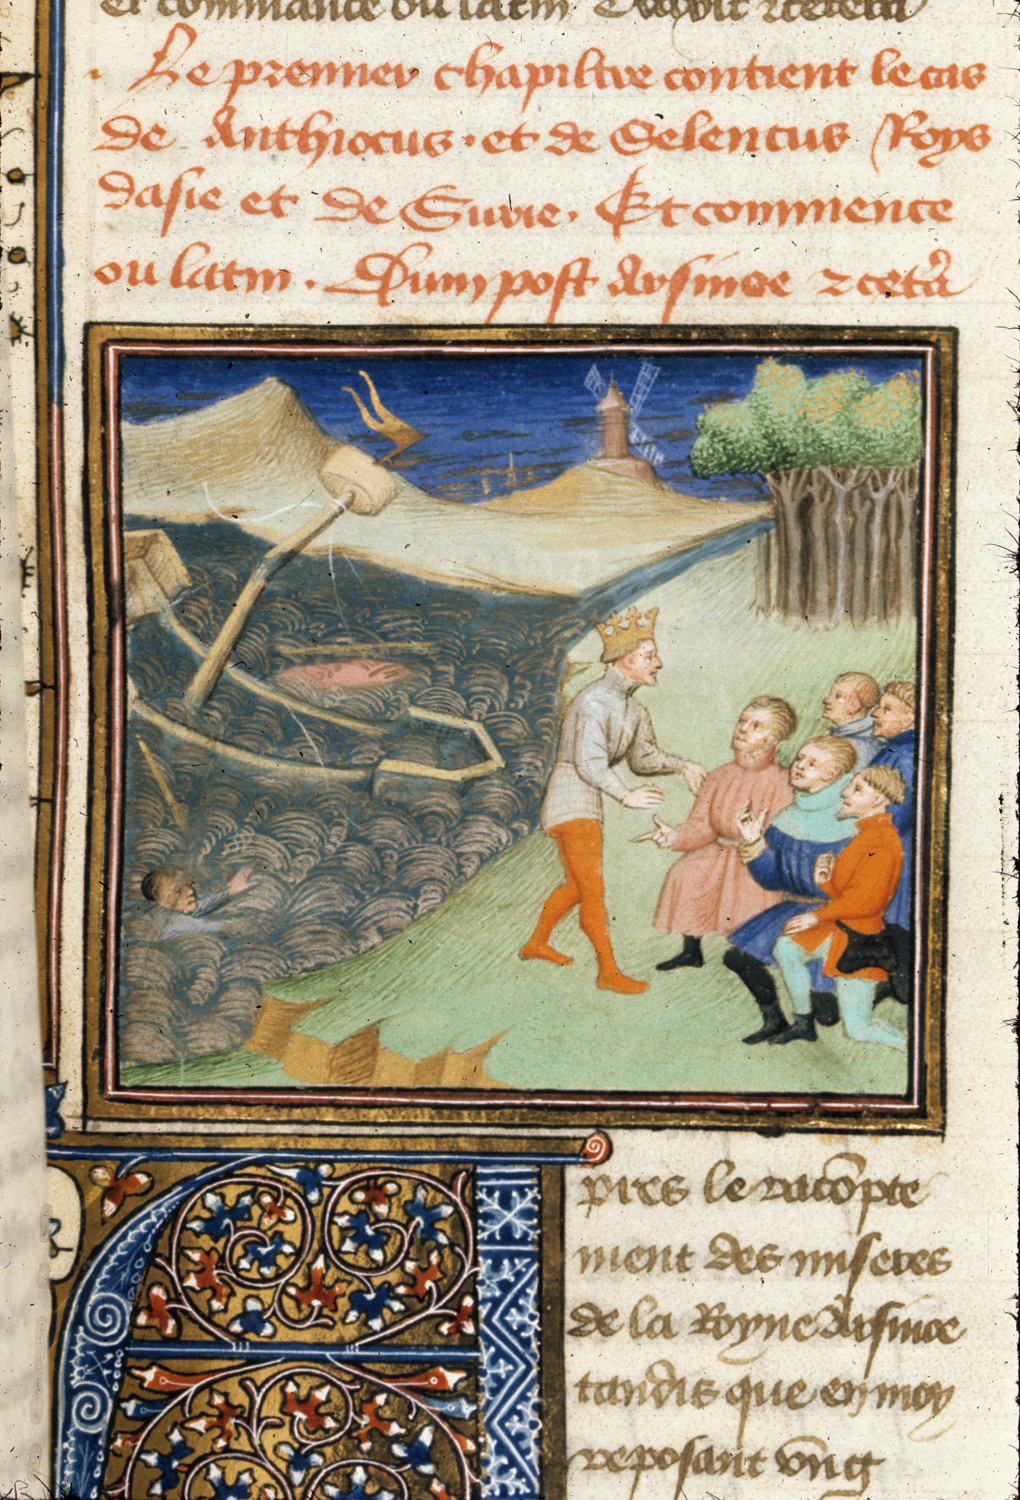 et commance ou latin
Le premier chapiltre contient le cas
de Anthiocus · et de Selencus Roys
dasie et de Surie . Et commence
ou latin . Dum post Arsinoe ⁊ cetã
pres le racõpte
ment des miseres
de la Royne Arsinoe
tandis que en moy
reposant vng